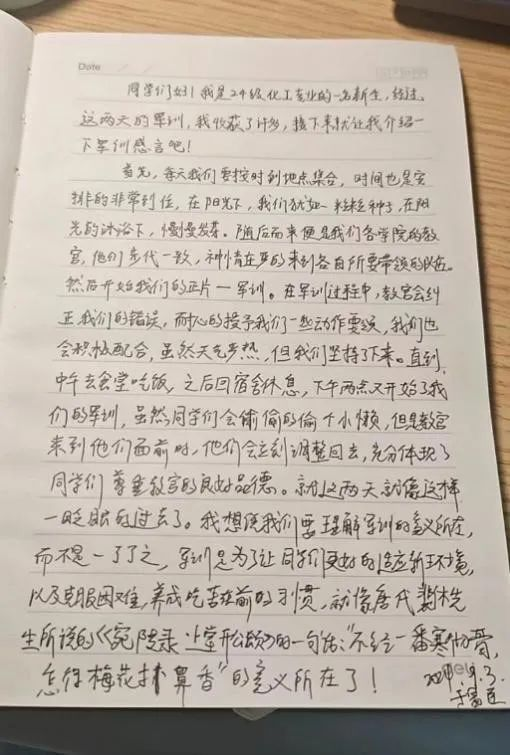 Date / /
同学们好！我是24级化工专业的一名新生，经过
这两天的军训，我收获了许多，接下来就让我介绍一
下军训感言吧！
首先，每天我们要按时到地点集合，时间也是安
排的非常到位，在阳光下，我们犹如一粒粒种子，在阳
光的沐浴下，慢慢发芽。随后而来便是我们各学院的教
官，他们步伐一致，神情庄严的来到各自所要带领的队伍。
然后开始我们的正片一军训。在军训过程中，教官会纠
正我们的错误，耐心的授予我们一些动作要领，我们也
会积极配合，虽然天气炎热，但我们坚持了下来。直到
中午去食堂吃饭，之后回宿舍休息，下午两点又开始了我
们的军训，虽然同学们会偷偷的偷个小懒，但是教官
来到他们面前时，他们会立刻调整回去，充分体现了
同学们尊重教官的良好品德。就这两天就像这样
一眨眼的过去了。我想说我们要理解军训的意义所在，
而不是一了了之，军训是为了让同学们更好的适应新环境，
以及克服困难，养成吃苦在前的习惯，就像唐代裴休先
生所说的《宛陵录·上堂开示颂》的一句话："不经一番寒彻骨，
怎得梅花扑鼻香"的意义所在了！
deli
2024.9.3.